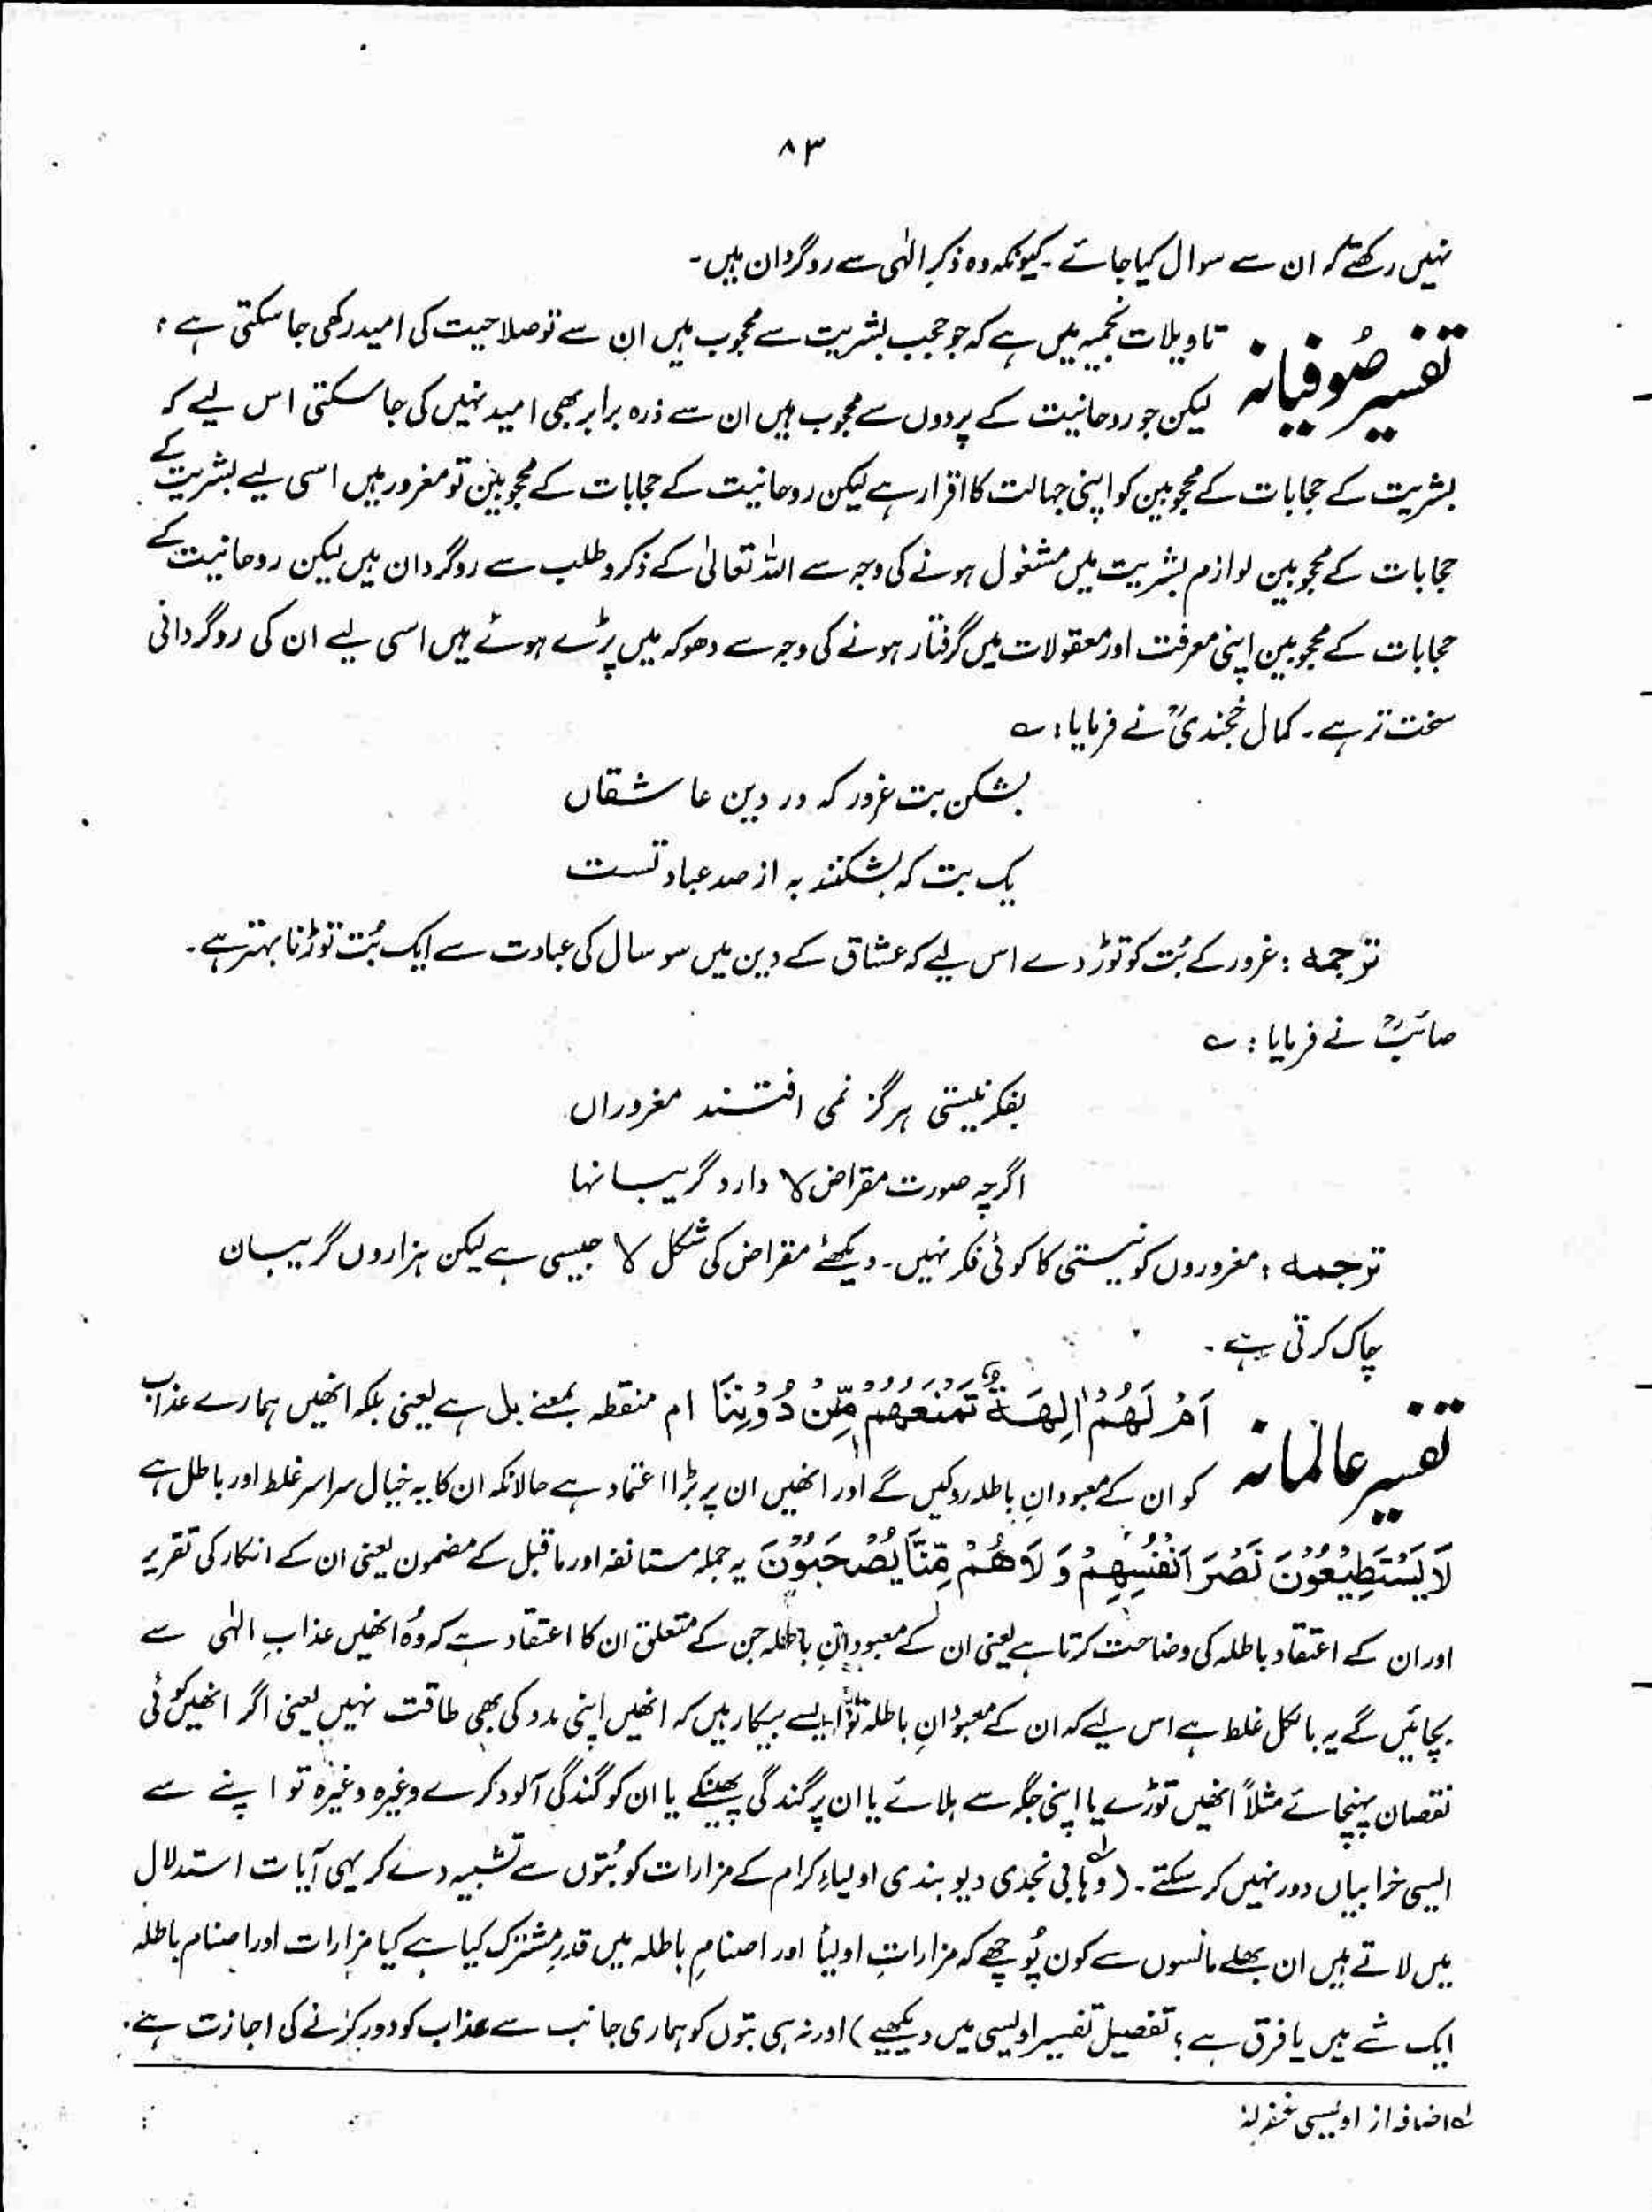 ۸۳
نہیں رکھتے کہ ان سے سوال کیا جائے ۔ کیونکہ وہ ذکرِ الٰہی سے روگردان ہیں۔
تفسیر صُوفیانہ تاویلات نجمیہ میں ہے کہ جو حجب بشریت سے محجوب ہیں ان سے تو صلاحیت کی امید رکھی جا سکتی ہے ،
لیکن جو روحانیت کے پردوں سے محجوب ہیں ان سے ذرہ برابر بھی امید نہیں کی جا سکتی اس لیے کہ
بشریت کے حجابات کے محجوبین کو اپنی جہالت کا اقرار ہے لیکن روحانیت کے حجابات کے محجوبین تو مغرور ہیں اسی لیے بشریت کے
حجابات کے محجوبین لوازم بشریت میں مشغول ہونے کی وجہ سے اللہ تعالیٰ کے ذکر و طلب سے روگردان ہیں لیکن روحانیت کے
حجابات کے محجوبین اپنی معرفت اور معقولات میں گرفتار ہونے کی وجہ سے دھوکہ میں پڑے ہوئے ہیں اسی لیے ان کی روگردانی
سخت تر ہے ۔ کمال خجندیؒ نے فرمایا : ؎
بشکن بت غرور کہ در دین عاشقاں
یک بت کہ بشکنند بہ از صد عبادتست
ترجمہ : غرور کے بُت کو توڑ دے اس لیے کہ عشاق کے دین میں سو سال کی عبادت سے ایک بُت توڑنا بہتر ہے ۔
صائبؒ نے فرمایا : ؎
بفکر نیستی ہرگز نمی افتند مغروراں
اگرچہ صورت مقراض لا دارد گریبانہا
ترجمہ : مغروروں کو نیستی کا کوئی فکر نہیں ۔ دیکھئے مقراض کی شکل لا جیسی ہے لیکن ہزاروں گریبان
چاک کرتی ہے ۔
تفسیر عالمانہ اَمْ لَهُمْ اٰلِهَةٌ تَمْنَعُهُمْ مِّنْ دُوْنِنَا ام منقطہ بمعنے بل ہے یعنی بلکہ انھیں ہمارے عذاب
کو ان کے معبودانِ باطلہ روکیں گے اور انھیں ان پر بڑا اعتماد ہے حالانکہ ان کا یہ خیال سراسر غلط اور باطل ہے
لَا يَسْتَطِيْعُوْنَ نَصْرَ اَنْفُسِهِمْ وَ لَا هُمْ مِّنَّا يُصْحَبُوْنَ یہ جملہ مستانفہ اور ماقبل کے مضمون یعنی ان کے انکار کی تقریر
اور ان کے اعتقاد باطلہ کی وضاحت کرتا ہے یعنی ان کے معبودانِ باطلہ جن کے متعلق ان کا اعتقاد ہے کہ وُہ انھیں عذابِ الٰہی سے
بچائیں گے یہ بالکل غلط ہے اس لیے کہ ان کے معبودانِ باطلہ تو ایسے بیکار ہیں کہ انھیں اپنی مدد کی بھی طاقت نہیں یعنی اگر انھیں کوئی
نقصان پہنچائے مثلاً انھیں توڑے یا اپنی جگہ سے ہلائے یا ان پر گندگی پھینکے یا ان کو گندگی آلود کرے وغیرہ وغیرہ تو اپنے سے
ایسی خرابیاں دور نہیں کر سکتے ۔ (وہابی لہ نجدی دیوبندی اولیاءِ کرام کے مزارات کو بُتوں سے تشبیہ دے کر یہی آیات استدلال
میں لاتے ہیں ان بھلے مانسوں سے کون پُوچھے کہ مزاراتِ اولیأ اور اصنامِ باطلہ میں قدرِ مشترک کیا ہے کیا مزارات اور اصنام باطلہ
ایک شے ہیں یا فرق ہے ؛ تفصیل تفسیر اویسی میں دیکھیے ) اور نہ ہی بتوں کو ہماری جانب سے عذاب کو دور کرنے کی اجازت ہے ۔
لہ اضافہ از اویسی غفرلہٗ